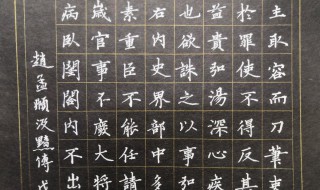 主取容而刀筆吏
於罪使不得反其
益貴弘湯深心疾
也欲誅之以事弘
右内史界部中多
素重臣不能任請
歲官事不廢大將
病臥閨閤内不出
趙孟頫汲黯傳戊